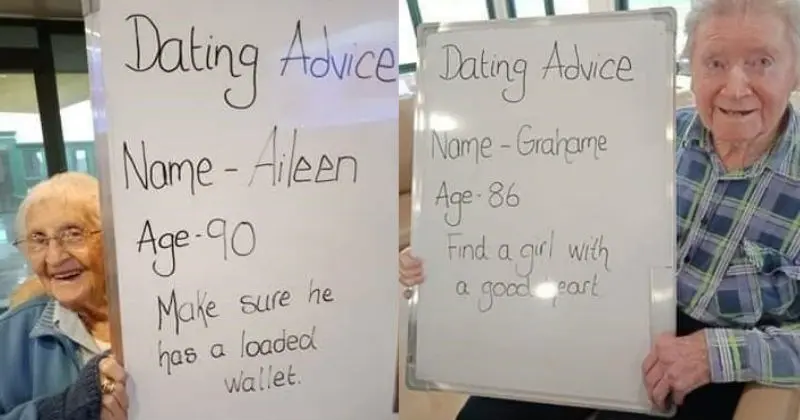 Dating Advice
Name - Aileen
Age - 90
Make sure he
has a loaded
wallet.
Dating Advice
Name - Grahame
Age - 86
Find a girl with
a good